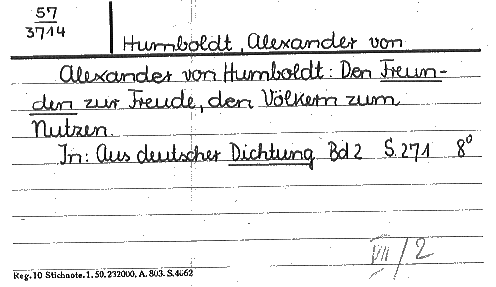 57
3714
Humboldt, Alexander von
Alexander von Humboldt: Den Freun-
den zur Freude, den Völkern zum
Nutzen.
In: Aus deutscher Dichtung Bd 2 S. 271 8°
VII/2
Reg. 10 Stichnote. 1. 50. 232000. A. 803. S. 4662